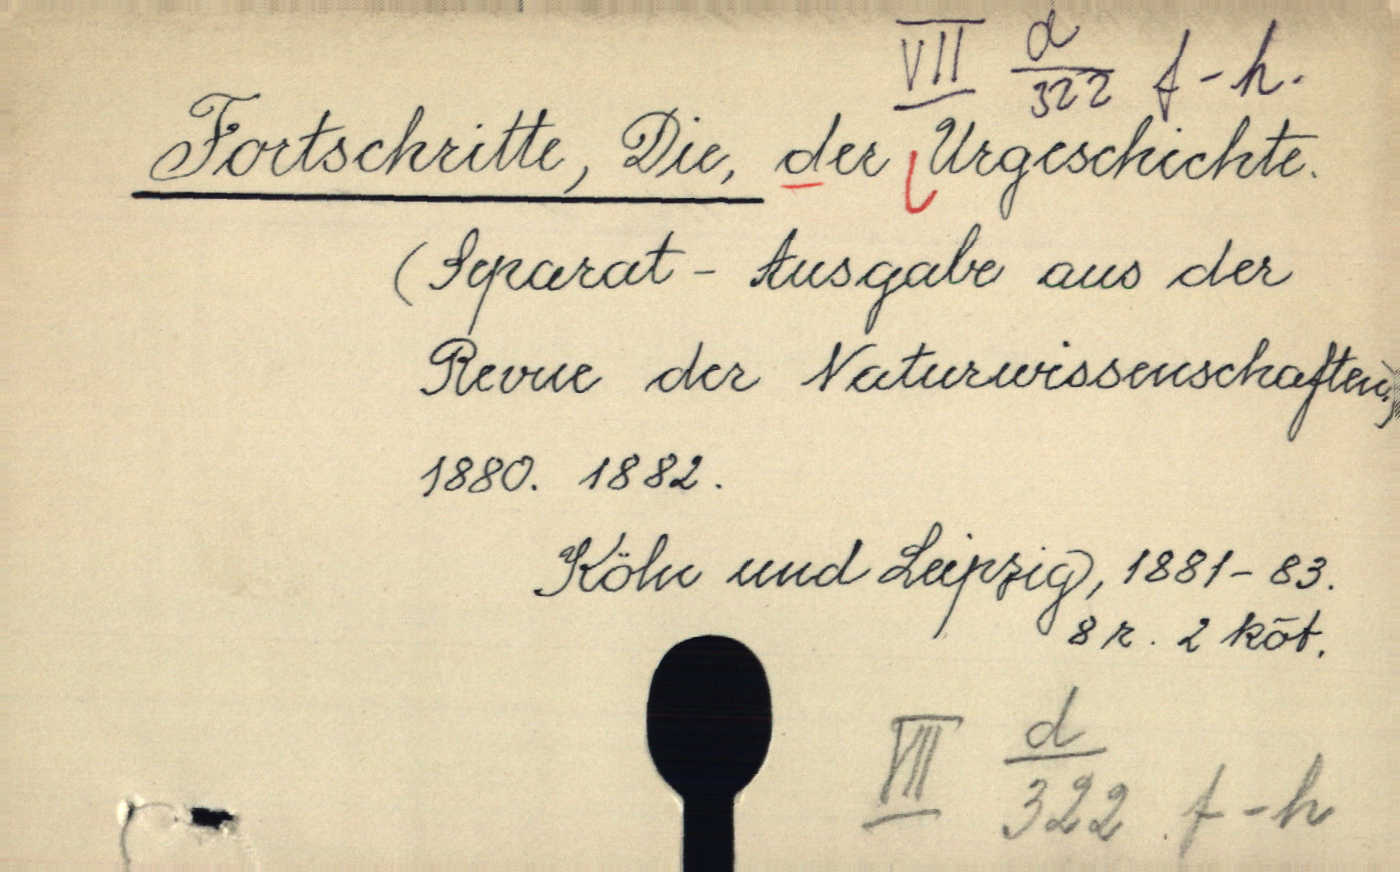 VII d/322 f-h.
Fortschritte, Die, der Urgeschichte.
(Separat - Ausgabe aus der
Revue der Naturwissenschaften.)
1880. 1882.
Köln und Leipzig, 1881-83.
8 r. 2 köt.
VII d/322 f-h